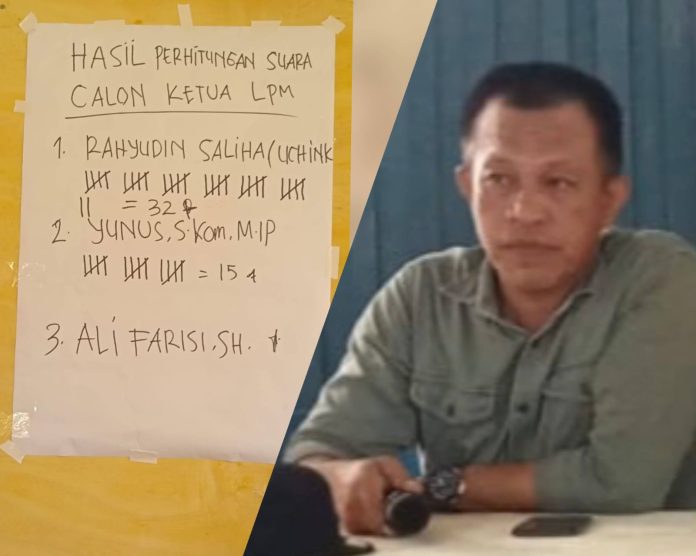 HASIL PERHITUNGAN SUARA
CALON KETUA LPM
1. RAHYUDIN SALIHA (UCHINK
= 32
2. YUNUS, S.Kom, M.IP
= 15
3. ALI FARISI, SH.